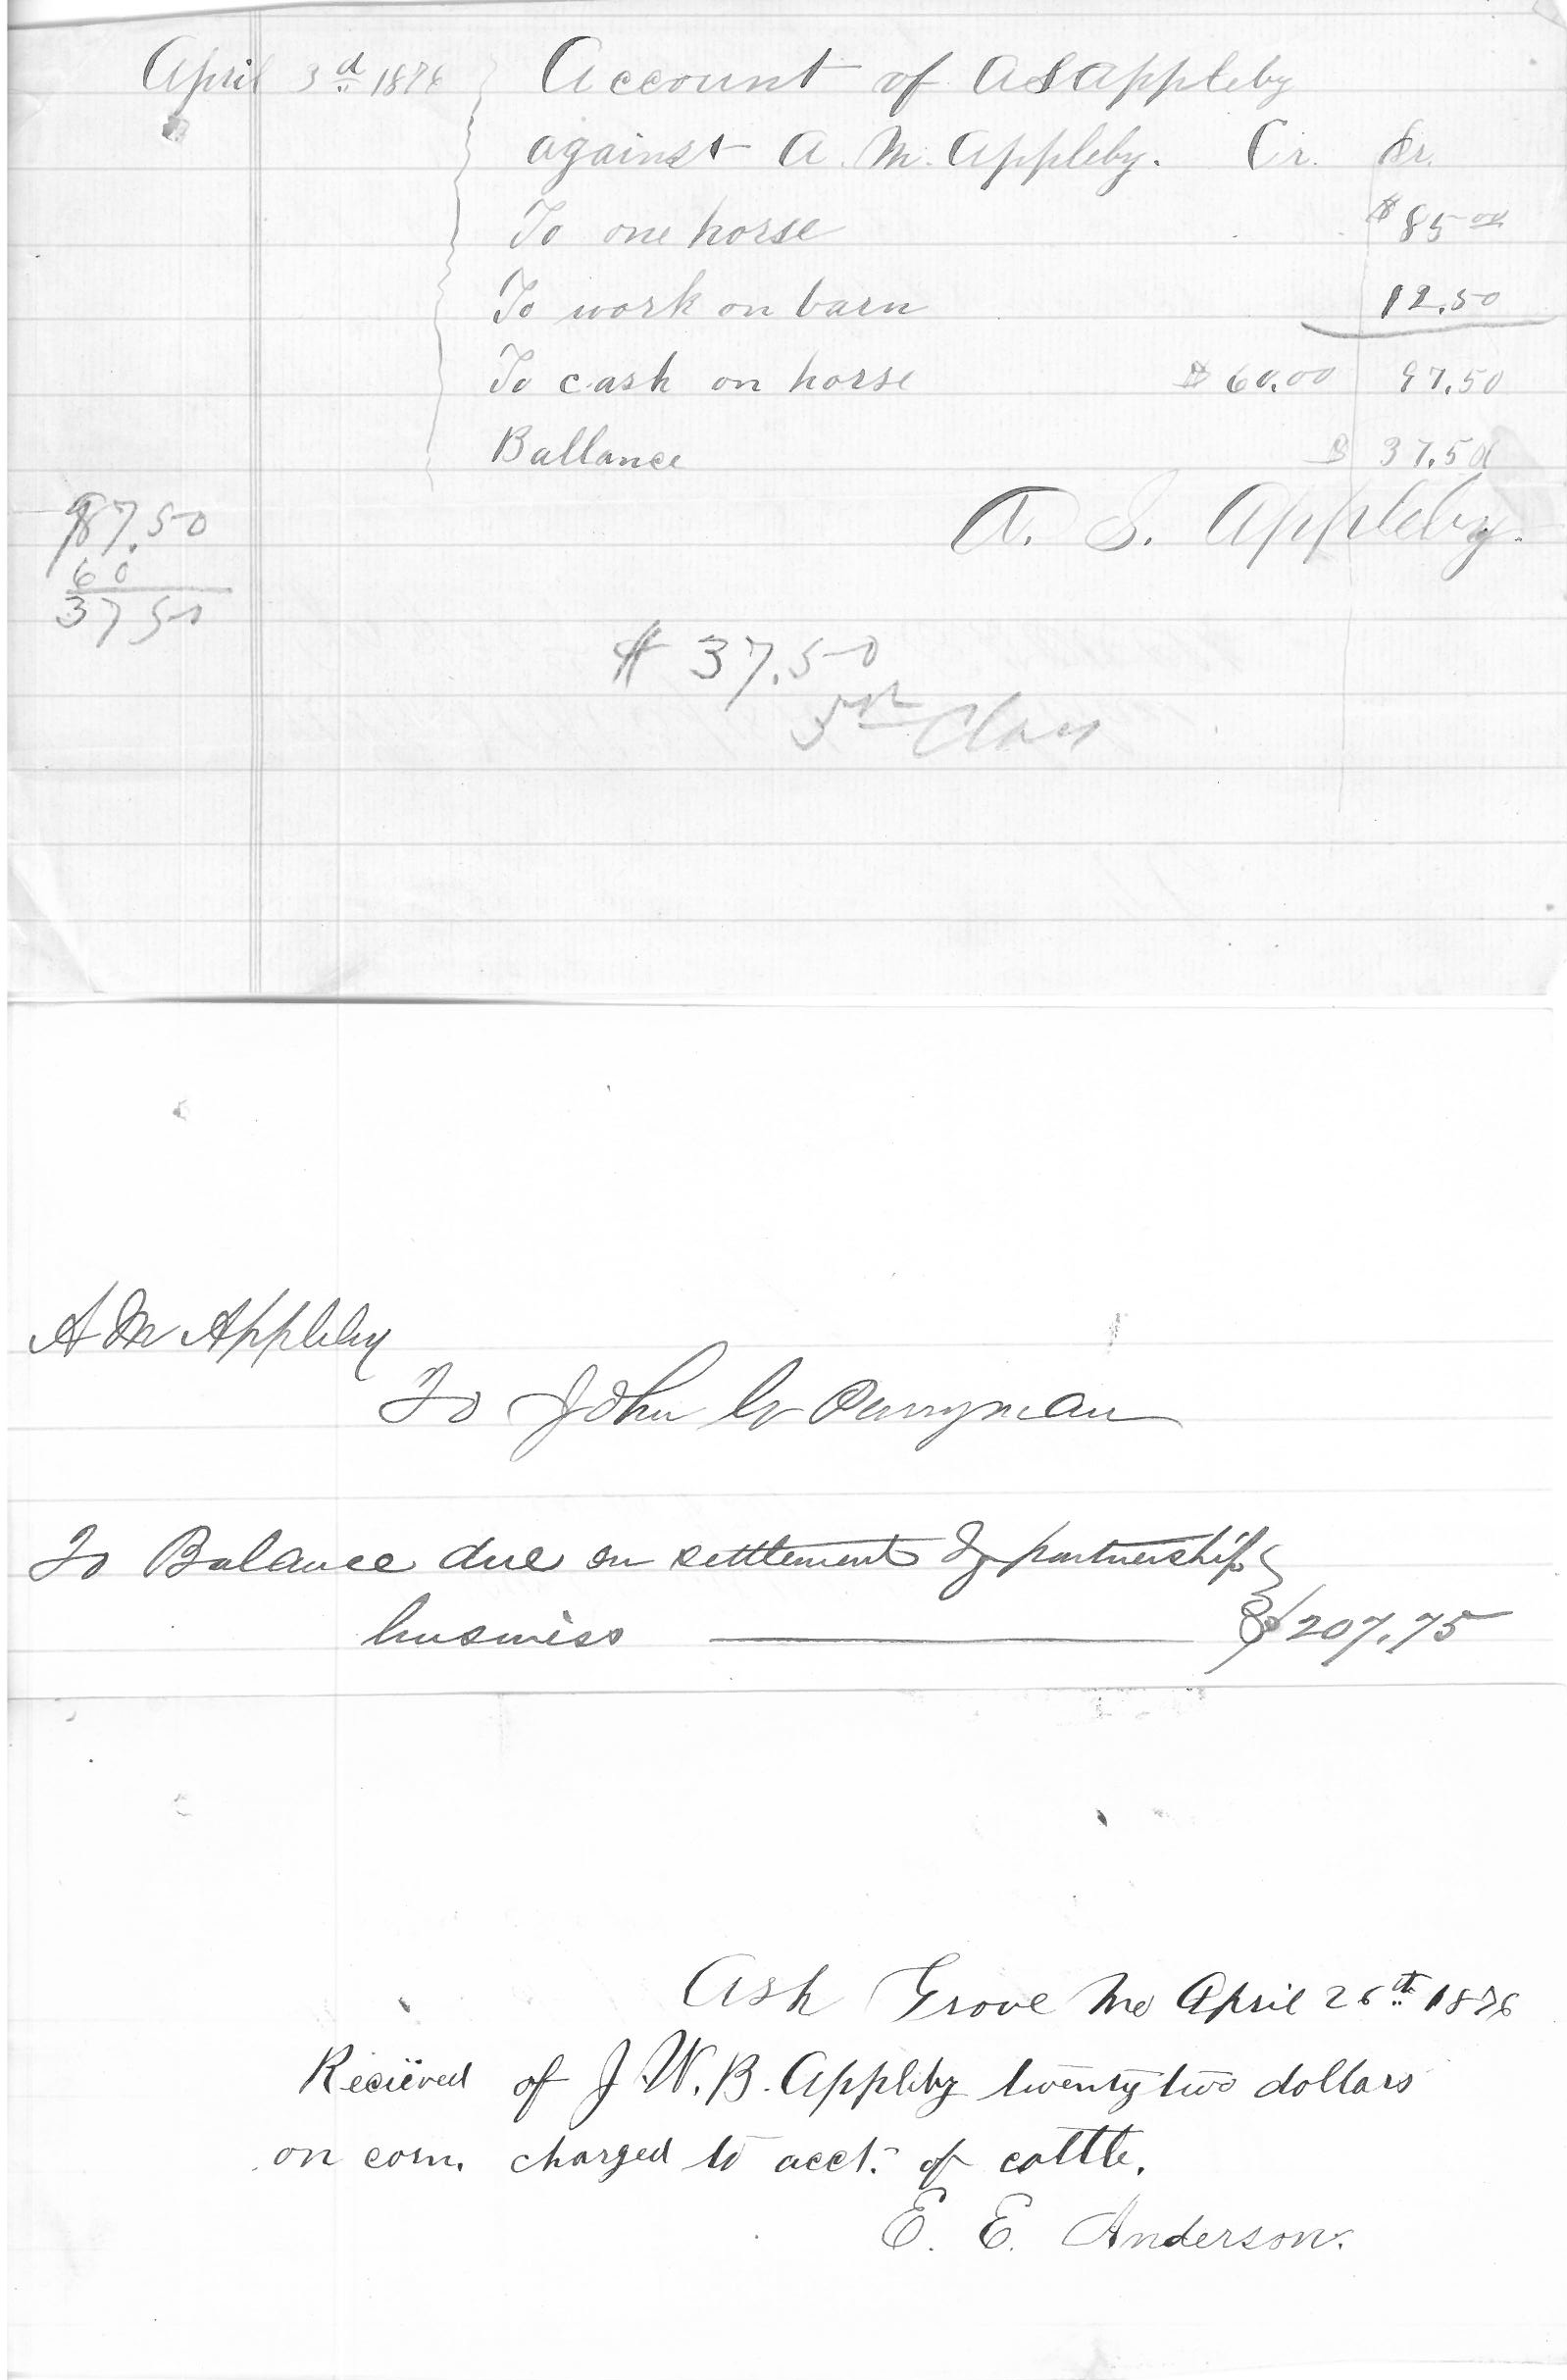 April 3d 1876 Account of A S Appleby
against A. M. Appleby. Cr. Dr.
To one horse $85 00
To work on barn 12.50
To cash on horse $60.00 97.50
Ballance $ 37.50
A. S. Appleby.
97.50
60
37 50
$ 37.50
5th Class
A M Appleby
To John W Perryman
To Balance due on settlement of partnership
business $207.75
Ash Grove Mo April 26th 1876
Recieved of J. W. B. Appleby twenty two dollars
on corn. charged to acct. of cattle.
E. E. Anderson.